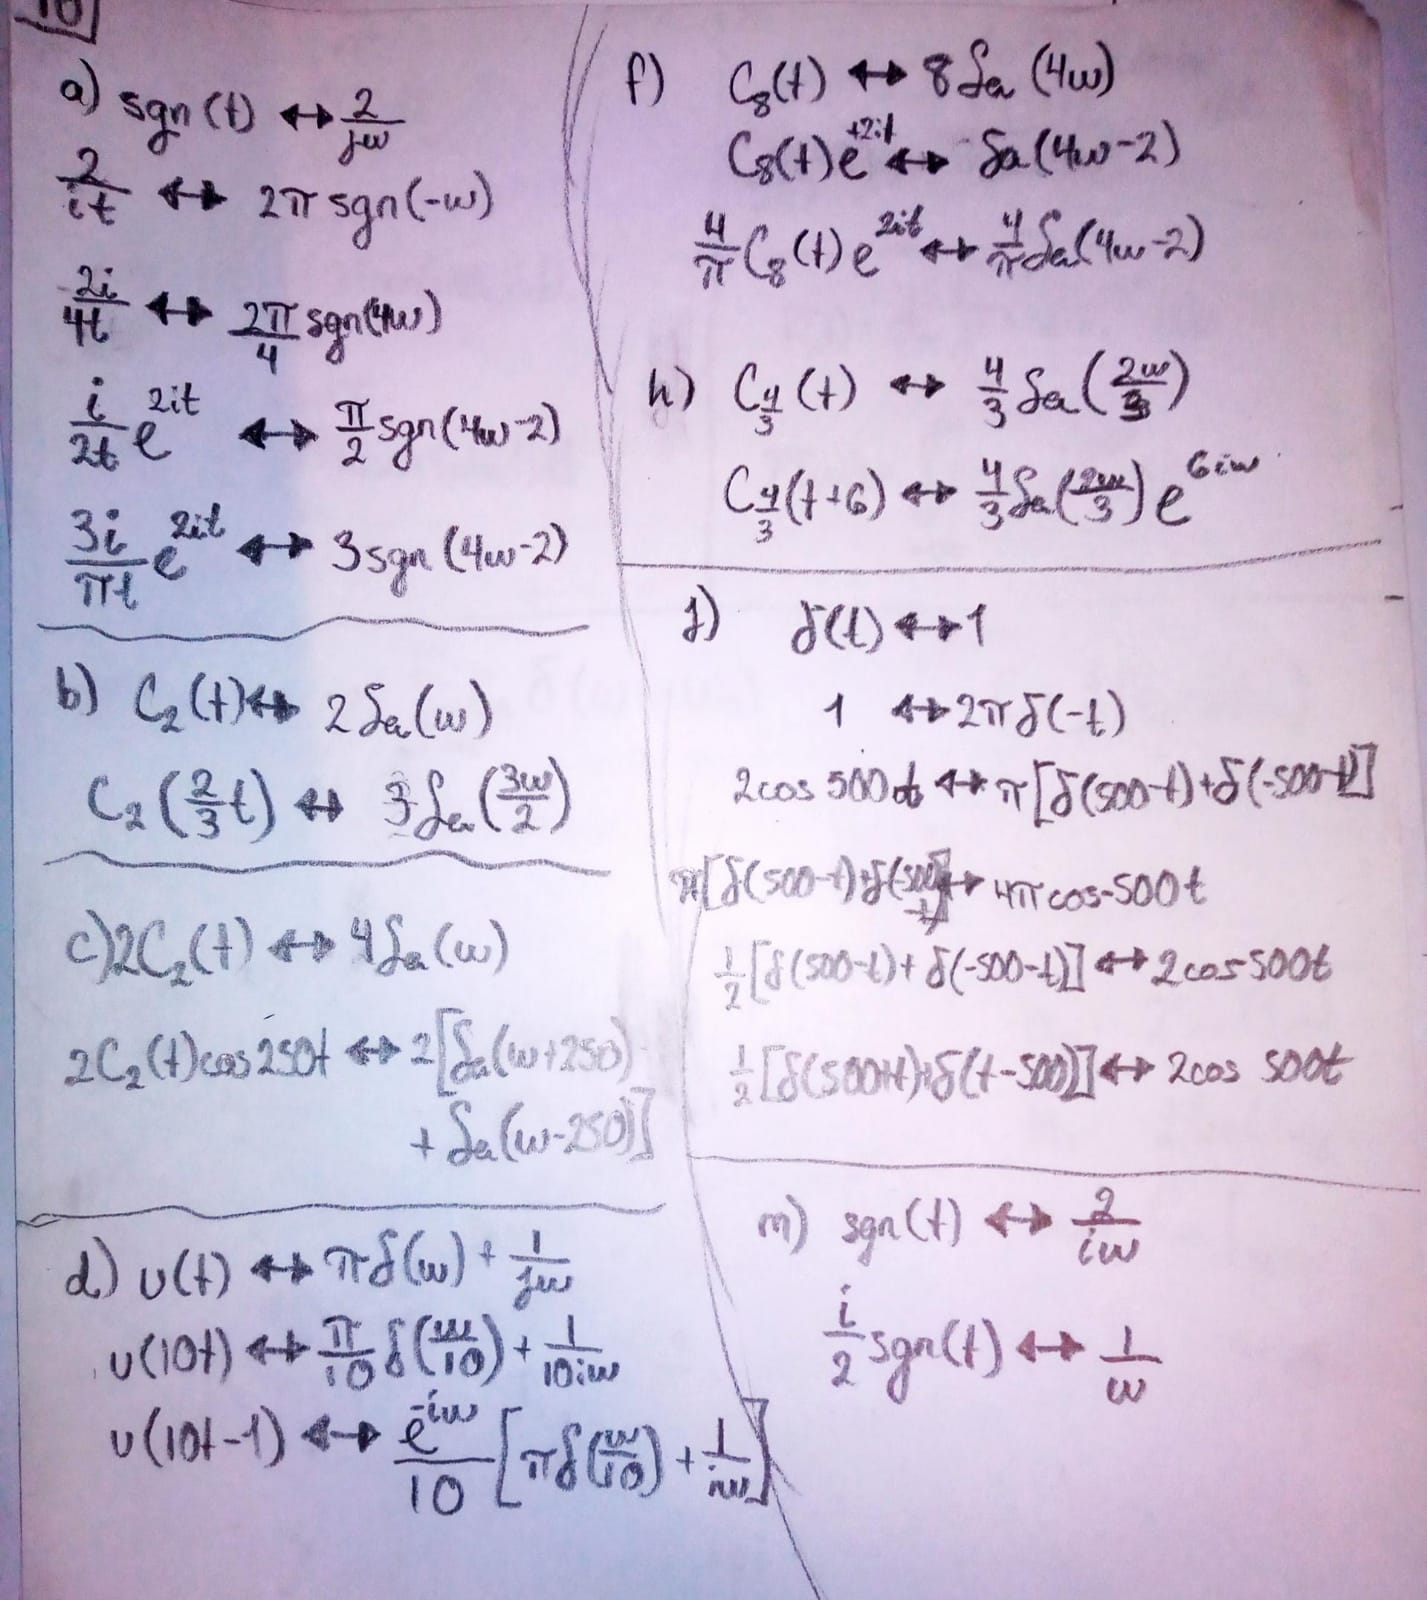 10
a) sgn(t) ↔ 2/jω
2/it ↔ 2π sgn(-ω)
2i/4t ↔ 2π/4 sgn(4ω)
i/2t e^2it ↔ π/2 sgn(4ω-2)
3i/πt e^2it ↔ 3 sgn(4ω-2)
b) C₂(t) ↔ 2Sa(ω)
C₂(2/3 t) ↔ 3Sa(3ω/2)
c) 2C₂(t) ↔ 4Sa(ω)
2C₂(t)cos250t ↔ 2[Sa(ω+250)
+ Sa(ω-250)]
d) u(t) ↔ πδ(ω) + 1/jω
u(10t) ↔ π/10 δ(ω/10) + 1/10iω
u(10t-1) ↔ e^-iω/10 [πδ(ω/10) + 1/iω]
f) C₈(t) ↔ 8Sa(4ω)
C₈(t)e^+2it ↔ Sa(4ω-2)
4/π C₈(t)e^2it ↔ 4/π Sa(4ω-2)
h) C_4/3(t) ↔ 4/3 Sa(2ω/3)
C_4/3(t+6) ↔ 4/3 Sa(2ω/3) e^6iω
j) δ(t) ↔ 1
1 ↔ 2πδ(-t)
2cos 500t ↔ π[δ(500-t)+δ(-500-t)]
π[δ(500-t)+δ(-500-t)] ↔ 4π cos-500t
1/2[δ(500-t)+δ(-500-t)] ↔ 2cos-500t
1/2[δ(500+t)+δ(t-500)] ↔ 2cos 500t
m) sgn(t) ↔ 2/iω
i/2 sgn(t) ↔ 1/ω